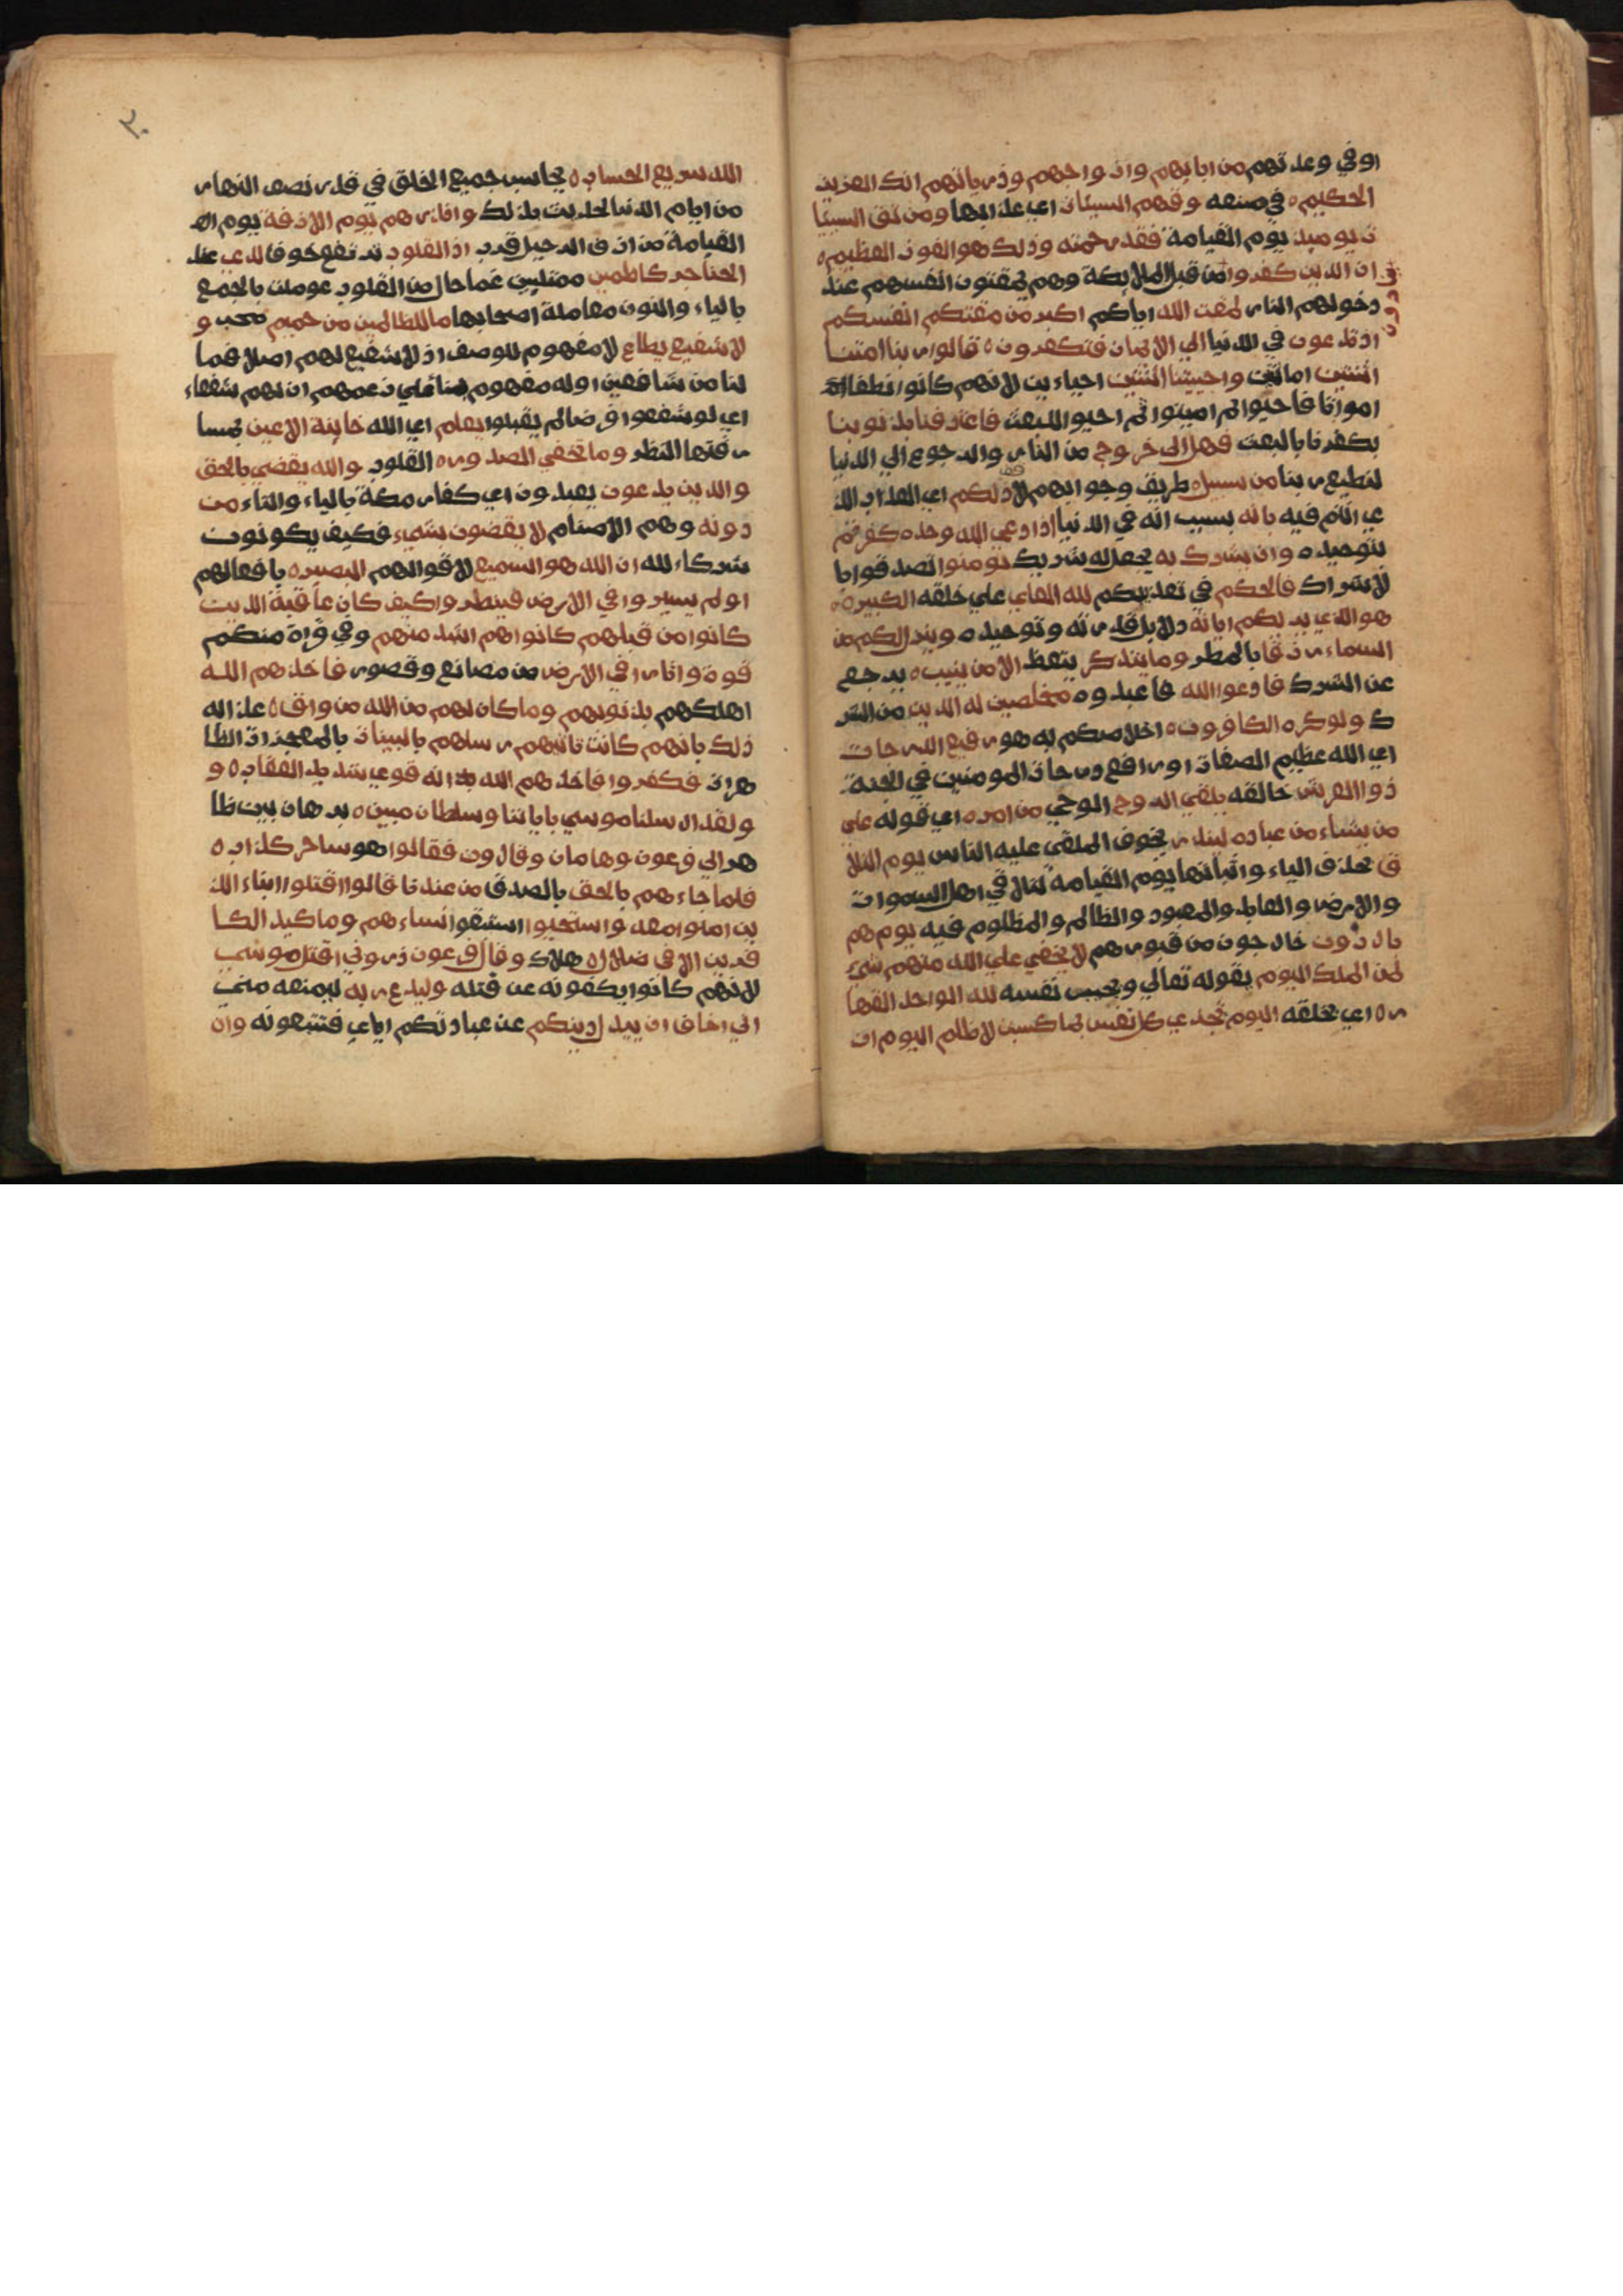 او في وعدتهم من ابايهم وازواجهم وذرياتهم انك العزيز
الحكيم ه في صنعه وقهم السيئات اي عذابها ومن تق السيئا
ت يوميذ يوم القيامة فقد رحمته وذلك هو الفوز العظيم ه
ان الذين كفروا من قبل الملايكة وهم يمقتون انفسهم عند
دخولهم النار لمقت الله اياكم اكبر من مقتكم انفسكم
اذ تدعون في الدنيا الي الايمان فتكفرون ه قالوا ربنا امتنا
اثنتين اماتتين واحييتنا اثنتين احياءين لانهم كانوا نطفا
امواتا فاحيوا ثم اميتوا ثم احيوا للبعث فاعترفنا بذنوبنا
بكفرنا بالبعث فهل الى خروج من النار والرجوع الي الدنيا
لنطيع ربنا من سبيل ه طريق وجوابهم لا ذلكم اي العذاب الذ
ي انتم فيه بانه بسبب انه في الدنيا اذا دعي الله وحده كفرتم
بتوحيده ه وان يشرك به يجعل له شريك تومنوا تصدقوا با
لاشراك فالحكم في تعذيبكم لله العلي علي خلقه الكبير ه
هو الذي يريكم اياته دلايل قدرته وتوحيده ه وينزل لكم من
السماء رزقا بالمطر وما يتذكر يتعظ الا من ينيب ه يرجع
عن الشرك فادعوا الله فاعبدوه مخلصين له الدين من الشر
ك ولو كره الكافرون ه اخلاصكم به هو رفيع الدرجات
اي الله عظيم الصفات او رافع درجات المومنين في الجنة
ذوا العرش خالقه يلقي الروح الوحي من امره ه اي قوله على
من يشاء من عباده لينذر يخوف الملقى عليه الناس يوم التلا
ق بحذف الياء واثباتها يوم القيامة لتلاقي اهل السموات
والارض والعابد والمعبود والظالم والمظلوم فيه يوم هم
بارزون خارجون من قبورهم لا يخفي علي الله منهم شيء
لمن الملك اليوم يقوله تعالي ويجيب نفسه لله الواحد القها
ر ه اي لخلقه اليوم تجزي كل نفس بما كسبت لا ظلم اليوم ان
٢٠
الله سريع الحساب ه يحاسب جميع الخلق في قدر نصف النهار
من ايام الدنيا لحديث بذلك وانذرهم يوم الازفة يوم
القيامة من ازف الرحيل قرب اذ القلوب ترتفع خوفا لدي عند
الحناجر كاظمين ممتلين غما حال من القلوب عوملت بالجمع
بالياء والنون معاملة اصحابها ما للظالمين من حميم محب و
لا شفيع يطاع لا مفهوم للوصف اذ لا شفيع لهم اصلا فما
لنا من شافعين اوله مفهوم بنا علي زعمهم ان لهم شفعاء
اي لو شفعوا فرضا لم يقبلوا يعلم اي الله خاينة الاعين بمسا
رقتها النظر وما تخفي الصدور ه القلوب والله يقضي بالحق
والذين يدعون يعبدون اي كفار مكة بالياء والتاء من
دونه وهم الاصنام لا يقضون بشيء فكيف يكونون
شركاء لله ان الله هو السميع لاقوالهم البصير ه بافعالهم
اولم يسيروا في الارض فينظروا كيف كان عاقبة الذين
كانوا من قبلهم كانوا هم اشد منهم وفي قراة منكم
قوة واثارا في الارض من مصانع وقصور فاخذهم الله
اهلكهم بذنوبهم وما كان لهم من الله من واق ه عذابه
ذلك بانهم كانت تاتيهم رسلهم بالبينات بالمعجزات الظا
هرات فكفروا فاخذهم الله انه قوي شديد العقاب ه و
ولقد ارسلنا موسي باياتنا وسلطان مبين ه برهان بين ظا
هر الي فرعون وهامان وقارون فقالوا هو ساحر كذاب ه
فلما جاءهم بالحق بالصدق من عندنا قالوا اقتلوا ابناء الذ
ين امنوا معه واستحيوا استبقوا نساءهم وما كيد الكا
فرين الا في ضلال ه هلاك وقال فرعون ذروني اقتل موسي
لانهم كانوا يكفونه عن قتله وليدع ربه ليمنعه مني
اني اخاف ان يبدل دينكم عن عبادتكم اياي فتتبعونه وان